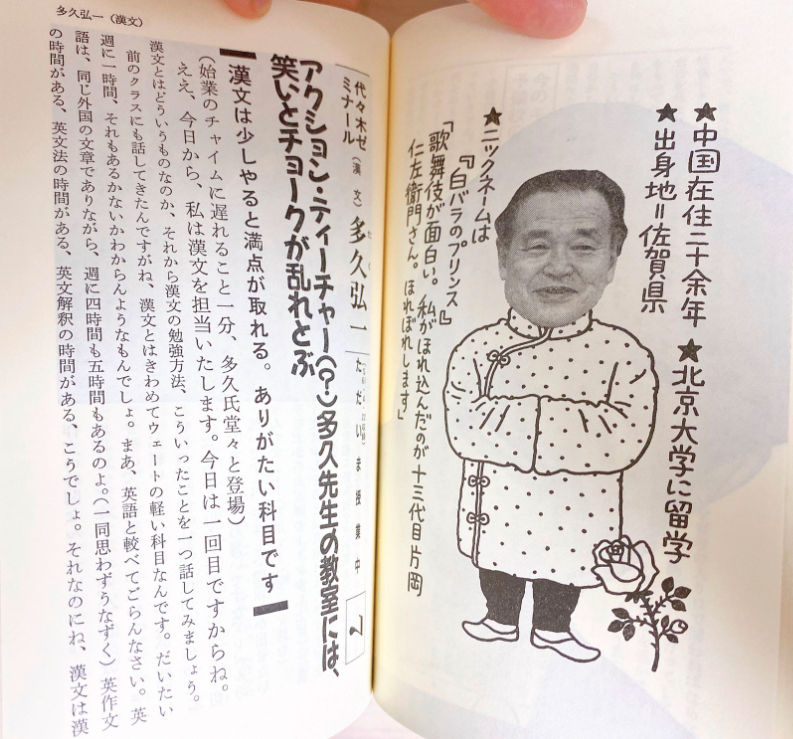 ★中国在住二十余年
★北京大学に留学
★出身地=佐賀県
★ニックネームは
『白バラのプリンス』
「歌舞伎が面白い。私がほれ込んだのが十三代目片岡
仁左衛門さん。ほれぼれします」
多久弘一(漢文)
代々木ゼ
ミナール(漢文)多久弘一 ただいま授業中 7
アクション・ティーチャー(?)多久先生の教室には、
笑いとチョークが乱れとぶ
漢文は少しやると満点が取れる。ありがたい科目です
(始業のチャイムに遅れること一分、多久氏堂々と登場)
ええ、今日から、私は漢文を担当いたします。今日は一回目ですからね。
漢文とはどういうものなのか、それから漢文の勉強方法、こういったことを一つ話してみましょう。
前のクラスにも話してきたんですがね、漢文とはきわめてウェートの軽い科目なんです。だいたい
週に一時間、それもあるかないかわからんようなもんでしょ。まあ、英語と較べてごらんなさい。英
語は、同じ外国の文章でありながら、週に四時間も五時間もあるのよ。(一同思わずうなずく)英作文
の時間がある、英文法の時間がある、英文解釈の時間がある、こうでしょ。それなのにね、漢文は漢